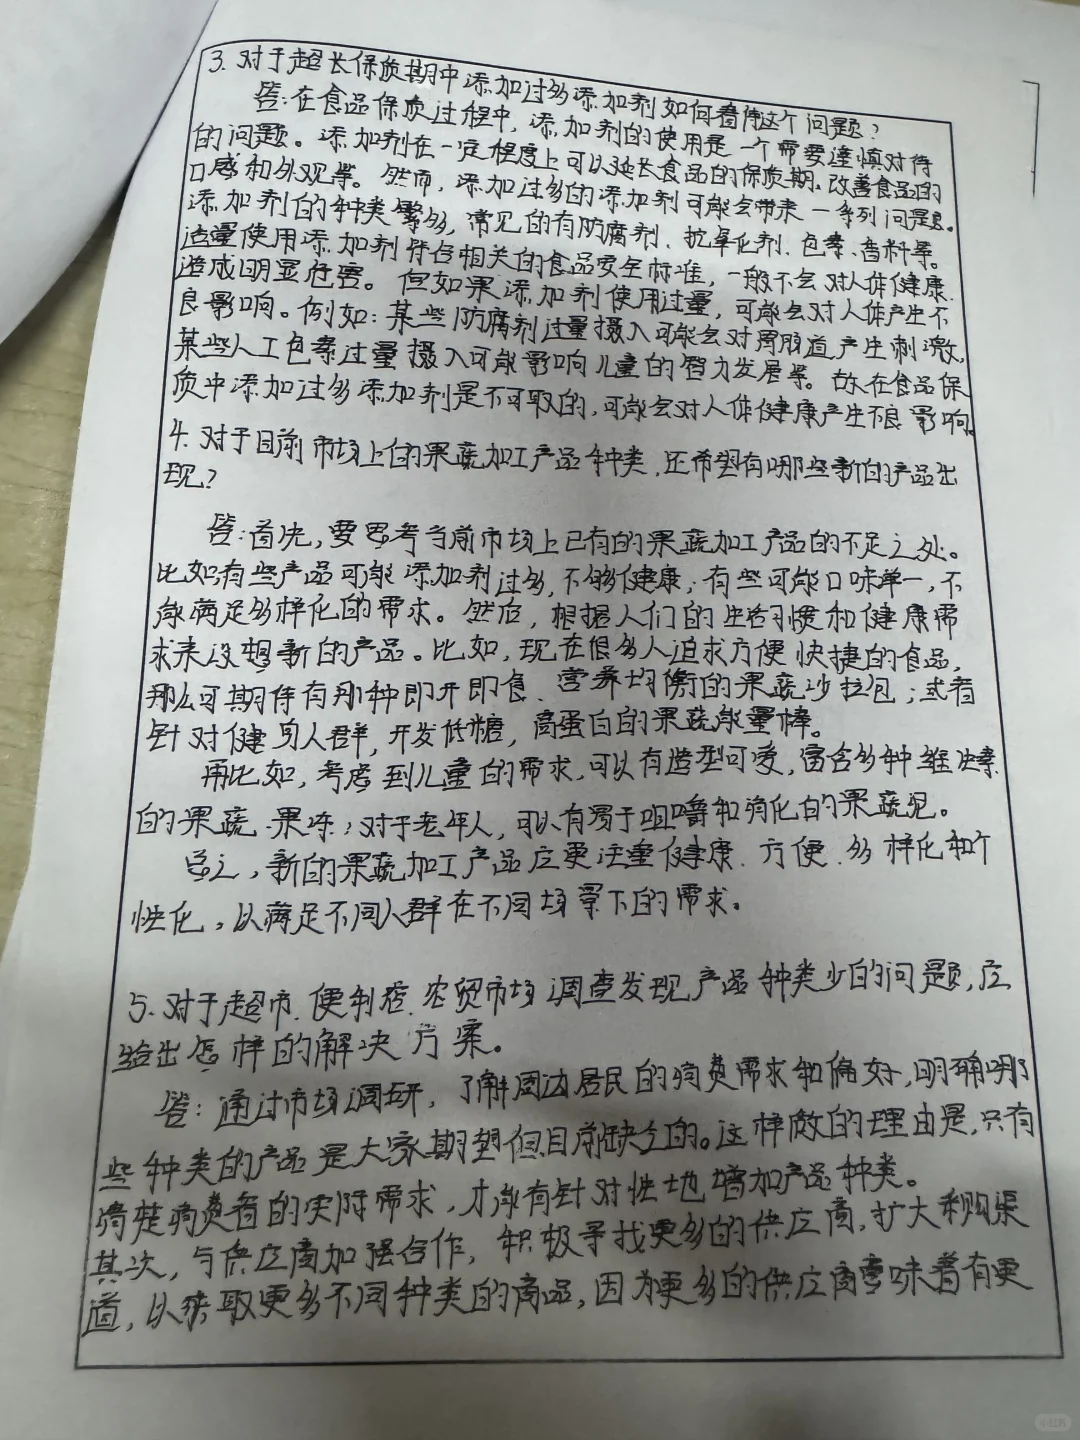 3. 对于超长保质期中添加过多添加剂如何看待这个问题?
答:在食品保质过程中,添加剂的使用是一个需要谨慎对待
的问题。添加剂在一定程度上可以延长食品的保质期、改善食品的
口感和外观等。然而,添加过多的添加剂可能会带来一系列问题。
添加剂的种类繁多,常见的有防腐剂、抗氧化剂、色素、香料等。
适量使用添加剂符合相关的食品安全标准,一般不会对人体健康
造成明显危害。但如果添加剂使用过量,可能会对人体产生不
良影响。例如:某些防腐剂过量摄入可能会对胃肠道产生刺激,
某些人工色素过量摄入可能影响儿童的智力发展等。故在食品保
质中添加过多添加剂是不可取的,可能会对人体健康产生不良影响。
4. 对于目前市场上的果蔬加工产品种类,还希望有哪些新的产品出
现?
答:首先,要思考当前市场上已有的果蔬加工产品的不足之处。
比如有些产品可能添加剂过多,不够健康;有些可能口味单一,不
能满足多样化的需求。然后,根据人们的生活习惯和健康需
求来设想新的产品。比如,现在很多人追求方便快捷的食品,
那么可期待有那种即开即食、营养均衡的果蔬沙拉包;或者
针对健身人群,开发低糖,高蛋白的果蔬能量棒。
再比如,考虑到儿童的需求,可以有造型可爱,富含多种维生素
的果蔬果冻;对于老年人,可以有易于咀嚼和消化的果蔬泥。
总之,新的果蔬加工产品应更注重健康、方便、多样化和个
性化,以满足不同人群在不同场景下的需求。
5. 对于超市、便利店、农贸市场调查发现产品种类少的问题,应
给出怎样的解决方案。
答:通过市场调研,了解周边居民的消费需求和偏好,明确哪
些种类的产品是大家期望但目前缺乏的。这样做的理由是,只有
清楚消费者的实际需求,才能有针对性地增加产品种类。
其次,与供应商加强合作,积极寻找更多的供应商,扩大采购渠
道,以获取更多不同种类的商品,因为更多的供应商意味着有更
小红书